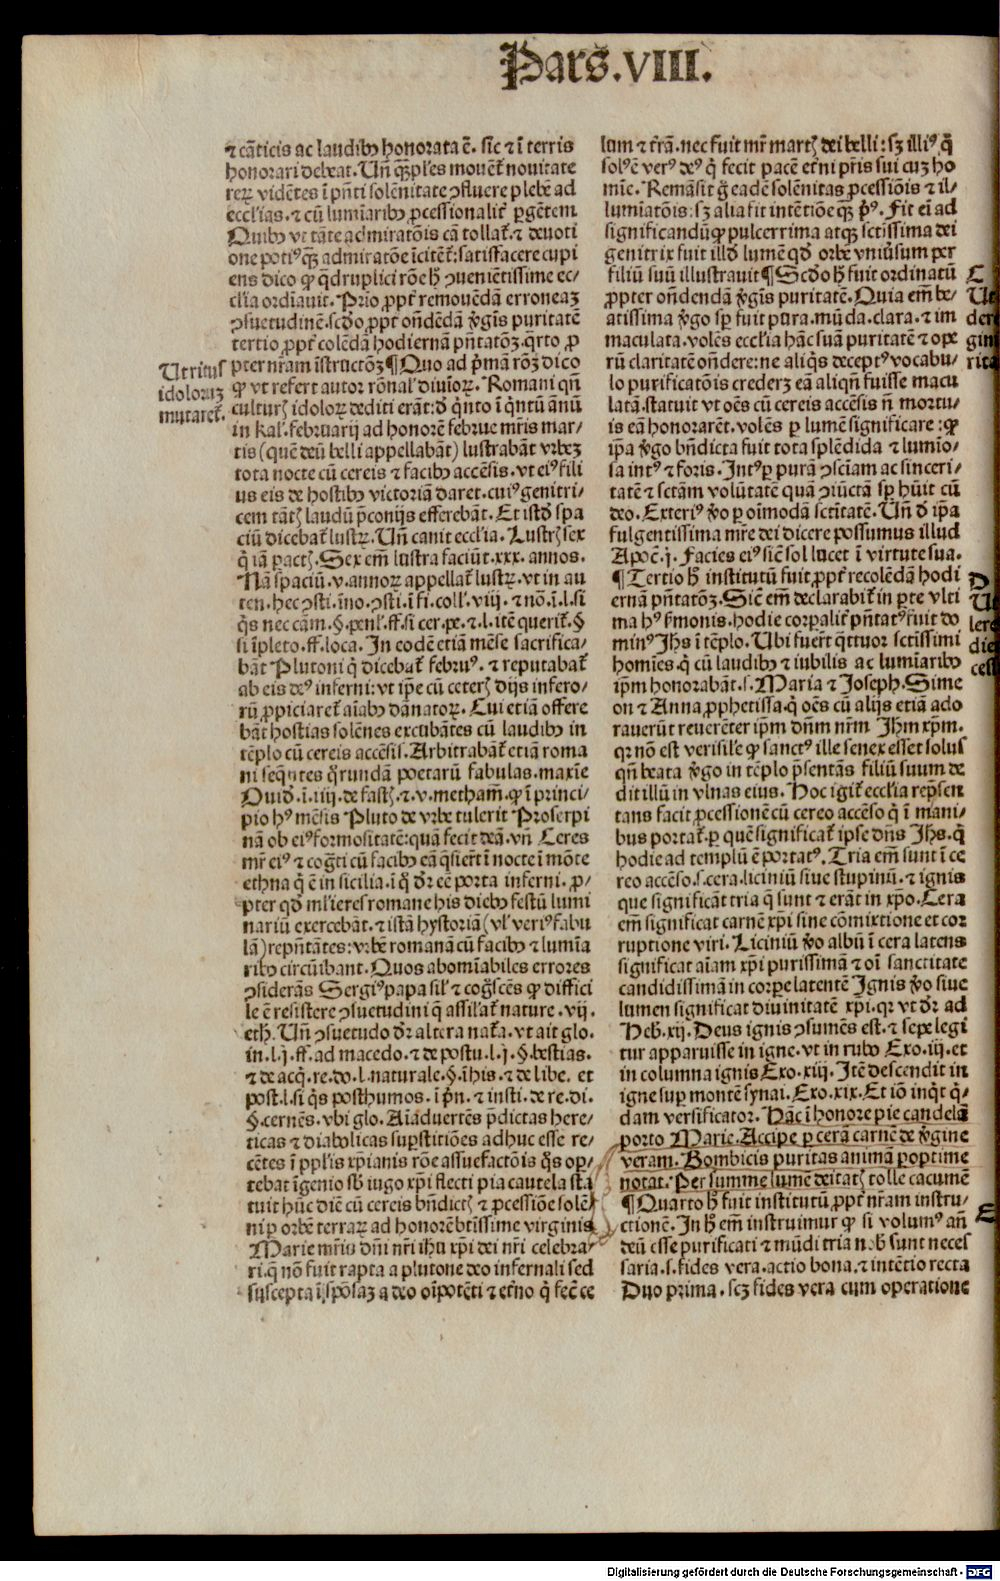 Pars.VIII.
⁊ cāticis ac laudibꝫ honorata ē. sic ⁊ ī terris
honorari debeat. Uñ qꝫples mouēt̄ nouitate
reꝝ vidētes ī pn̄ti solēnitate ↄfluere plebē ad
eccl'ias. ⁊ cū lumīaribꝫ ꝓcessionalit̄ ꝑgētem
Quibꝫ vt tāte admiratōis cā tollat̄. ⁊ deuoti
one poti⁹ qꝫ admiratōe īcitēt̄: satisfacere cupi
ens dico ꝙ qͣdruplici rōe hͦ ↄueniētissime ec/
cl'ia ordīauit. Prīo ꝓpt̄ remouēdā erroneaꝫ
ↄsuetudinē. scd̄o ꝓpt̄ on̄dēdā ꝟgīs puritatē
tertio ꝓpt̄ colēdā hodiernā pn̄tatōꝫ. qrto ꝓ
pter nr̄am īstructōꝫ ¶ Quo ad pͥmā rōꝫ dico
ꝙ vt refert autor rōnal' diuīoꝝ. Romani qn̄
culturꝭ idoloꝝ dediti erāt: d̄ qͥnto ī qͥntū ānū
in kal'. februarij ad honorē februe mr̄is mar/
tis (quē deū belli appellabāt) lustrabāt vrbeꝫ
tota nocte cū cereis ⁊ facibꝫ accēsis. vt ei⁹ fili
us eis de hostibꝫ victoriā daret. cui⁹ genitri/
cem tātꝭ laudū p̄conijs efferebāt. Et istd̄ spa
ciū dicebat̄ lustꝝ. Uñ canit eccl'ia. Lustrꝭ sex
qͥ iā pactꝭ. Sex em̄ lustra faciūt .xxx. annos.
Nā spaciū .v. annoꝝ appellat̄ lustꝝ. vt in au
ten. hec ↄsti. īno. ↄsti. ī fi. coll'. viij. ⁊ nō. ī .l. si
qͥs nec cām. §. penl'. ff. si cer. pe. ⁊ .l. itē querit̄. §
si īpleto. ff. loca. In eodē etiā mēse sacrifica/
bāt Plutoni qͥ dicebat̄ febru⁹. ⁊ reputabat̄
ab eis de⁹ inferni: vt ip̄e cū ceterꝭ dijs infero/
rū ꝓpiciaret̄ aīabꝫ dānatoꝝ. Cui etiā offere
bāt hostias solēnes excubātes cū laudibꝫ in
tēplo cū cereis accēsis. Arbitrabāt̄ etiā roma
ni seqntes qͦrundā poetarū fabulas. maxīe
Ouid̄. ī .iiij. de fastꝭ. ⁊ .v. metham̄. ꝙ ī princi/
pio h⁹ mēsis Pluto de vrbe tulerit Proserpi
nā ob ei⁹ formositatē: quā fecit deā. vn̄ Ceres
mr̄ ei⁹ ⁊ cog̃ti cū facibꝫ eā qͣsier̄t ī nocte ī mōte
ethna qͥ ē in sicilia. ī qͦ dr̄ eē porta inferni. ꝓ/
pter qd̄ ml'ieres romane his diebꝫ festū lumi
nariū exercebāt. ⁊ istā hystoriā (vl' veri⁹ fabu
lā) repn̄tātes: vrbē romanā cū facibꝫ ⁊ lumīa
ribꝫ circūibant. Quos abomīabiles errores
ↄsiderās Sergi⁹ papa sil' ⁊ cog̃scēs ꝙ diffici
le ē resistere ↄsuetudini q̄ assilat̄ nature .vij.
eth. Uñ ↄsuetudo dr̄ altera nat̄a. vt ait glo.
in .l. j. ff. ad macedo. ⁊ de postu. l. j. §. bestias.
⁊ de acq̄. re. do. l. naturale. §. ī his. ⁊ de libe. et
post. l. si qͥs posthumos. ī pn̄. ⁊ insti. de re. di.
§. cernēs. vbi glo. Aīaduertēs p̄dictas here/
ticas ⁊ diabolicas suꝑstitiōes adhuc esse re/
cētes ī ppl'is xp̄ianis rōe assuefactōis qͦs opꝫ/
tebat īgenio sb̄ iugo xp̄i flecti pia cautela sta
tuit hūc diē cū cereis bn̄dictꝭ ⁊ ꝓcessiōe solē/
ni ꝑ orbē terraꝝ ad honorē btīssime virginis
Marie mr̄is dn̄i nr̄i ihu xp̄i dei nr̄i celebra/
ri. q̄ nō fuit rapta a plutone deo infernali sed
suscepta ī spōsaꝫ a deo oīpotēti ⁊ et̄no qͥ fec̄ ce
Ut ritus
idoloruꝫ
mutaret̄.
lum ⁊ tr̄ā. nec fuit mr̄ martꝭ dei belli: sꝫ illi⁹. qͥ
sol' ē ver⁹ de⁹ qͥ fecit pacē et̄ni pr̄is sui cuꝫ ho
mīe. Remāsit g̊ eadē solēnitas ꝓcessiōis ⁊ il/
lumīatōis: sꝫ alia fit intētiōe qꝫ pͥ⁹. Fit ei̅ ad
significandū ꝙ pulcerrima atqꝫ sctīssima dei
genitrix fuit illd̄ lumē qd̄ orbē vniūsum per
filiū suū illustrauit ¶ Scd̄o hͦ fuit ordinatū
ꝓpter on̄dendā ꝟgīs puritatē. Quia em̄ be/
atissima ꝟgo sꝑ fuit pura. mūda. clara. ⁊ im
maculata. volēs eccl'ia hāc suā puritatē ⁊ ope
rū claritatē on̄dere: ne aliqͥs decept⁹ vocabu/
lo purificatōis crederꝫ eā aliqn̄ fuisse macu
latā. statuit vt oēs cū cereis accēsis n̄ mortu/
is eā honorarēt. volēs ꝑ lumē significare: ꝙ
ip̄a ꝟgo bn̄dicta fuit tota splēdida ⁊ lumīo/
sa int⁹ ⁊ foris. Int⁹ ꝑ purā ↄsciam ac sinceri/
tatē ⁊ sctām volūtatē quā ↄiūctā sꝑ hūit cū
deo. Exteri⁹ ꝟo ꝑ oīmodā sctītatē. Uñ d̄ ip̄a
fulgentissima mr̄e dei dicere possumus illud
Apoc̄. j. Facies ei⁹ sic̄ sol lucet ī virtute sua.
¶ Tertio hͦ institutū fuit ꝓpt̄ recolēdā hodi
ernā pn̄tatōꝫ. Sic̄ em̄ declarabit̄ in ꝑte vlti
ma h⁹ sr̄monis. hodie corꝑalit̄ pn̄tat⁹ fuit do
min⁹ Jhs ī tēplo. Ubi fuer̄t qͣttuor sctīssimi
homīes. qͥ cū laudibꝫ ⁊ iubilis ac lumīaribꝫ
ip̄m honorabāt. s. Maria ⁊ Joseph. Sime
on ⁊ Anna ꝓphetissa. qͥ oēs cū alijs etiā ado
rauerūt reuerēter ip̄m dn̄m nr̄m Jhm xp̄m.
qꝛ nō est verisil'e ꝙ sanct⁹ ille senex esset solus
qn̄ beata ꝟgo in tēplo p̄sentās filiū suum de
dit illū in vlnas eius. Hoc igit̄ eccl'ia rep̄sen
tans facit ꝓcessionē cū cereo accēso qͥ ī mani/
bus portat̄. ꝑ quē significat̄ ipse dn̄s Jhs. qͥ
hodie ad templū ē portat⁹. Tria em̄ sunt ī ce
reo accēso. s. cera. liciniū siue stupinū. ⁊ ignis
que significāt tria q̄ sunt ⁊ erāt in xp̄o. Cera
em̄ significat carnē xp̄i sine cōmixtione et cor
ruptione viri. Liciniū ꝟo albū ī cera latens
significat aīam xp̄i purissimā ⁊ oī sanctitate
candidissimā in corꝑe latentē Ignis ꝟo siue
lumen significat diuinitatē xp̄i. qꝛ vt dr̄ ad
Heb. xij. Deus ignis ↄsumēs est. ⁊ sepe legi
tur apparuisse in igne. vt in rubo Exo. iij. et
in columna ignis Exo. xiij. Itē descendit in
igne suꝑ montē synai. Exo. xix. Et iō inqͥt qͥ/
dam versificator. Hāc ī honore pie candelā
porto Marie. Accipe ꝑ cerā carnē de ꝟgine
veram. Bombicis puritas animā ꝑoptime
notat. Per summe lumē deitatꝭ tolle cacumē
¶ Quarto hͦ fuit institutū ꝓpt̄ nr̄am instru/
ctionē. In hͦ em̄ instruimur ꝙ si volum⁹ añ
deū esse purificati ⁊ mūdi tria nob̄ sunt neces
saria. s. fides vera. actio bona. ⁊ intētio recta
Duo prima. scꝫ fides vera cum operatione